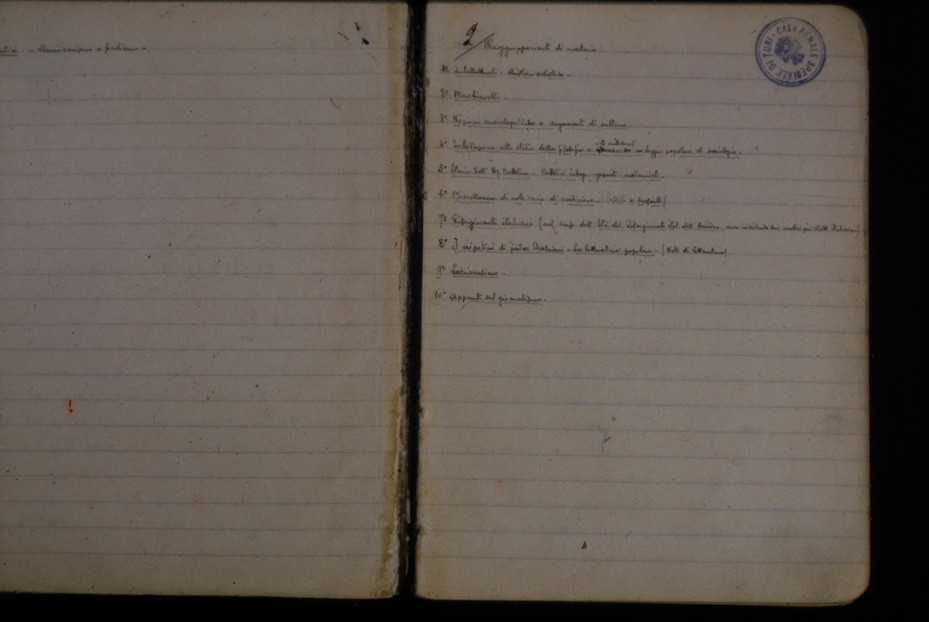 Americanismo e fordismo -
2
Raggruppamenti di materia
1° Intellettuali. Quistioni scolastiche.
2° Machiavelli.
3° Nozioni enciclopediche e argomenti di cultura
4° Introduzione allo studio della filosofia e note critiche ad un Saggio popolare di sociologia.
5° Storia dell'Az. Cattolica. Cattolici integr. - gesuiti - modernisti.
6° Miscellanea di note varie di erudizione. (Passato e presente)
7° Risorgimento italiano (nel senso dell'Età del Risorgimento italiano dell'Omodeo, ma insistendo sui motivi più strett. italiani)
8° I nipotini di padre Bresciani. La letteratura popolare. (Note di letteratura).
9° Lorianismo.
10° Appunti sul giornalismo.
CASA PENALE SPECIALE DI TURI